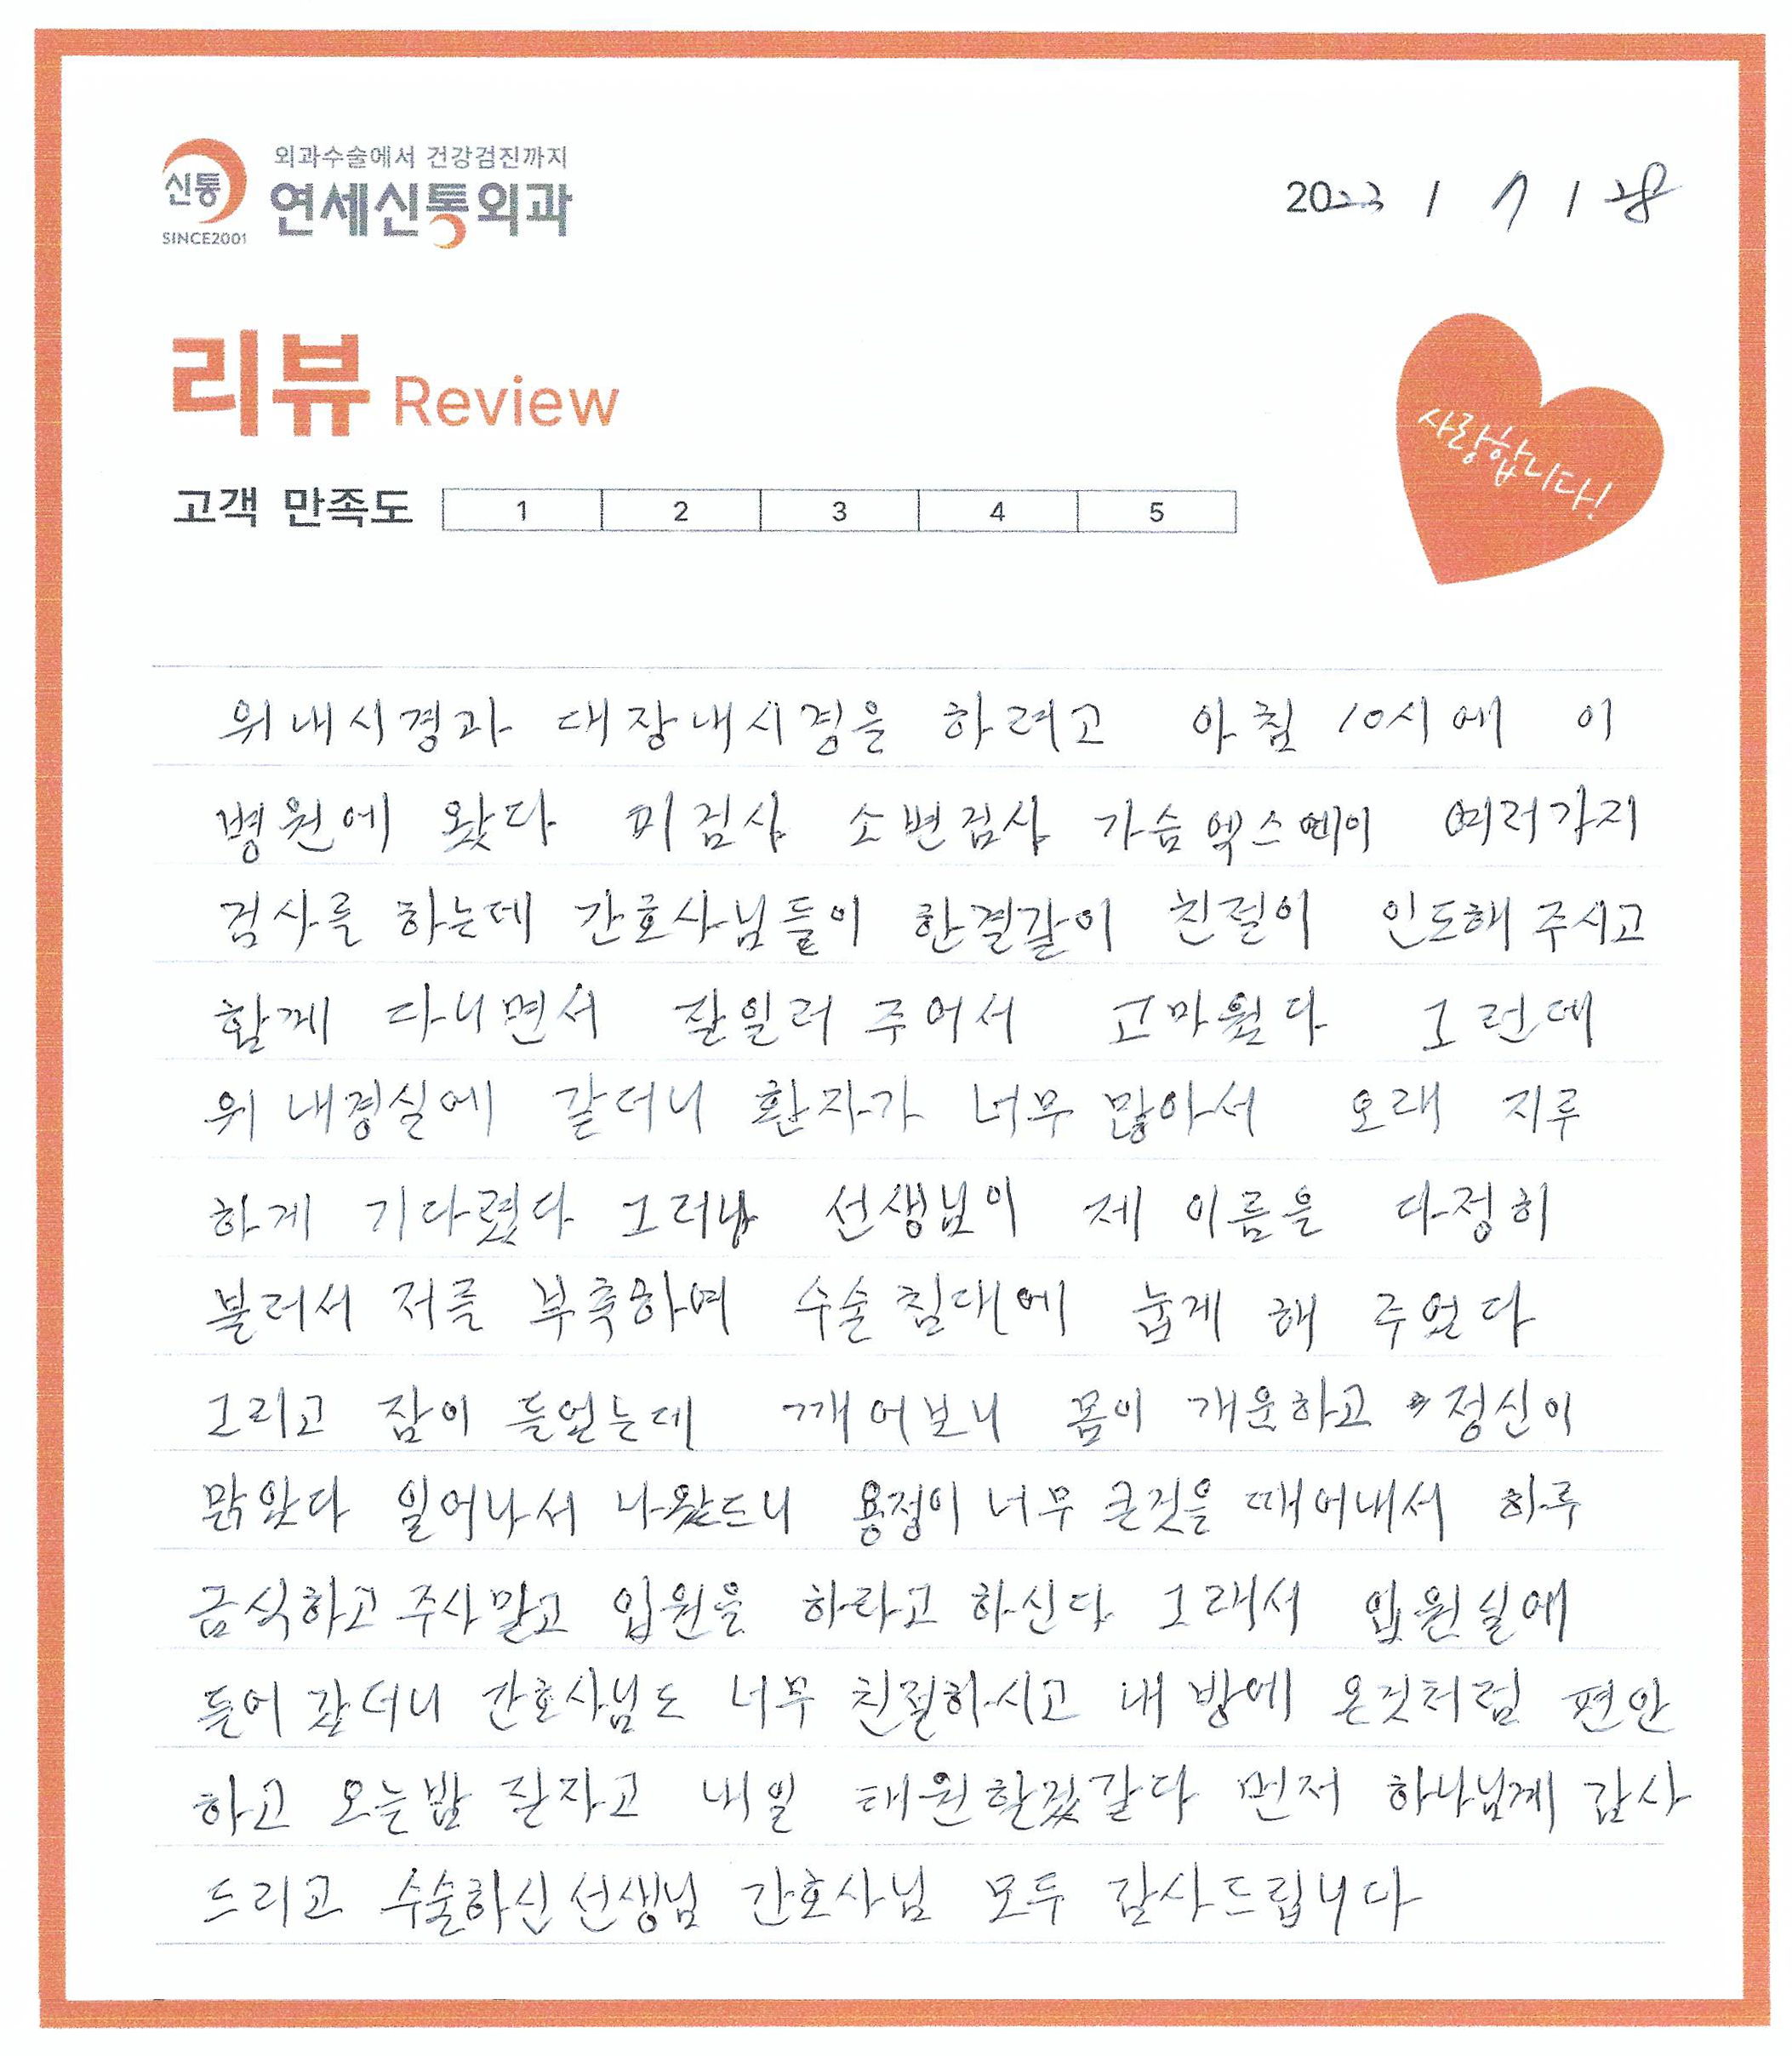 신통
SINCE2001
외과수술에서 건강검진까지
연세신통외과
2023 / 7 / 28
리뷰 Review
사랑합니다!
고객 만족도 1 2 3 4 5
위내시경과 대장내시경을 하려고 아침 10시에 이
병원에 왔다 피검사 소변검사 가슴엑스레이 여러가지
검사를 하는데 간호사님들이 한결같이 친절이 인도해 주시고
함께 다니면서 잘일러 주어서 고마웠다 그런데
위 내경실에 갇더니 환자가 너무 많아서 오래 지루
하게 기다렸다 그러나 선생님이 제 이름을 다정히
불러서 저를 부축하여 수술 침대에 눕게 해 주었다
그리고 잠이 들었는데 깨어보니 몸이 개운하고 정신이
맑았다 일어나서 나왔드니 용정이 너무 큰것을 때어내서 하루
금식하고 주사맏고 입원을 하라고 하신다 그래서 입원실에
들어 갔더니 간호사님도 너무 친절하시고 내 방에 온것처럼 편안
하고 오는밤 잘자고 내일 태원할겄같다 먼저 하나님께 감사
드리고 수술하신 선생님 간호사님 모두 감사드립니다